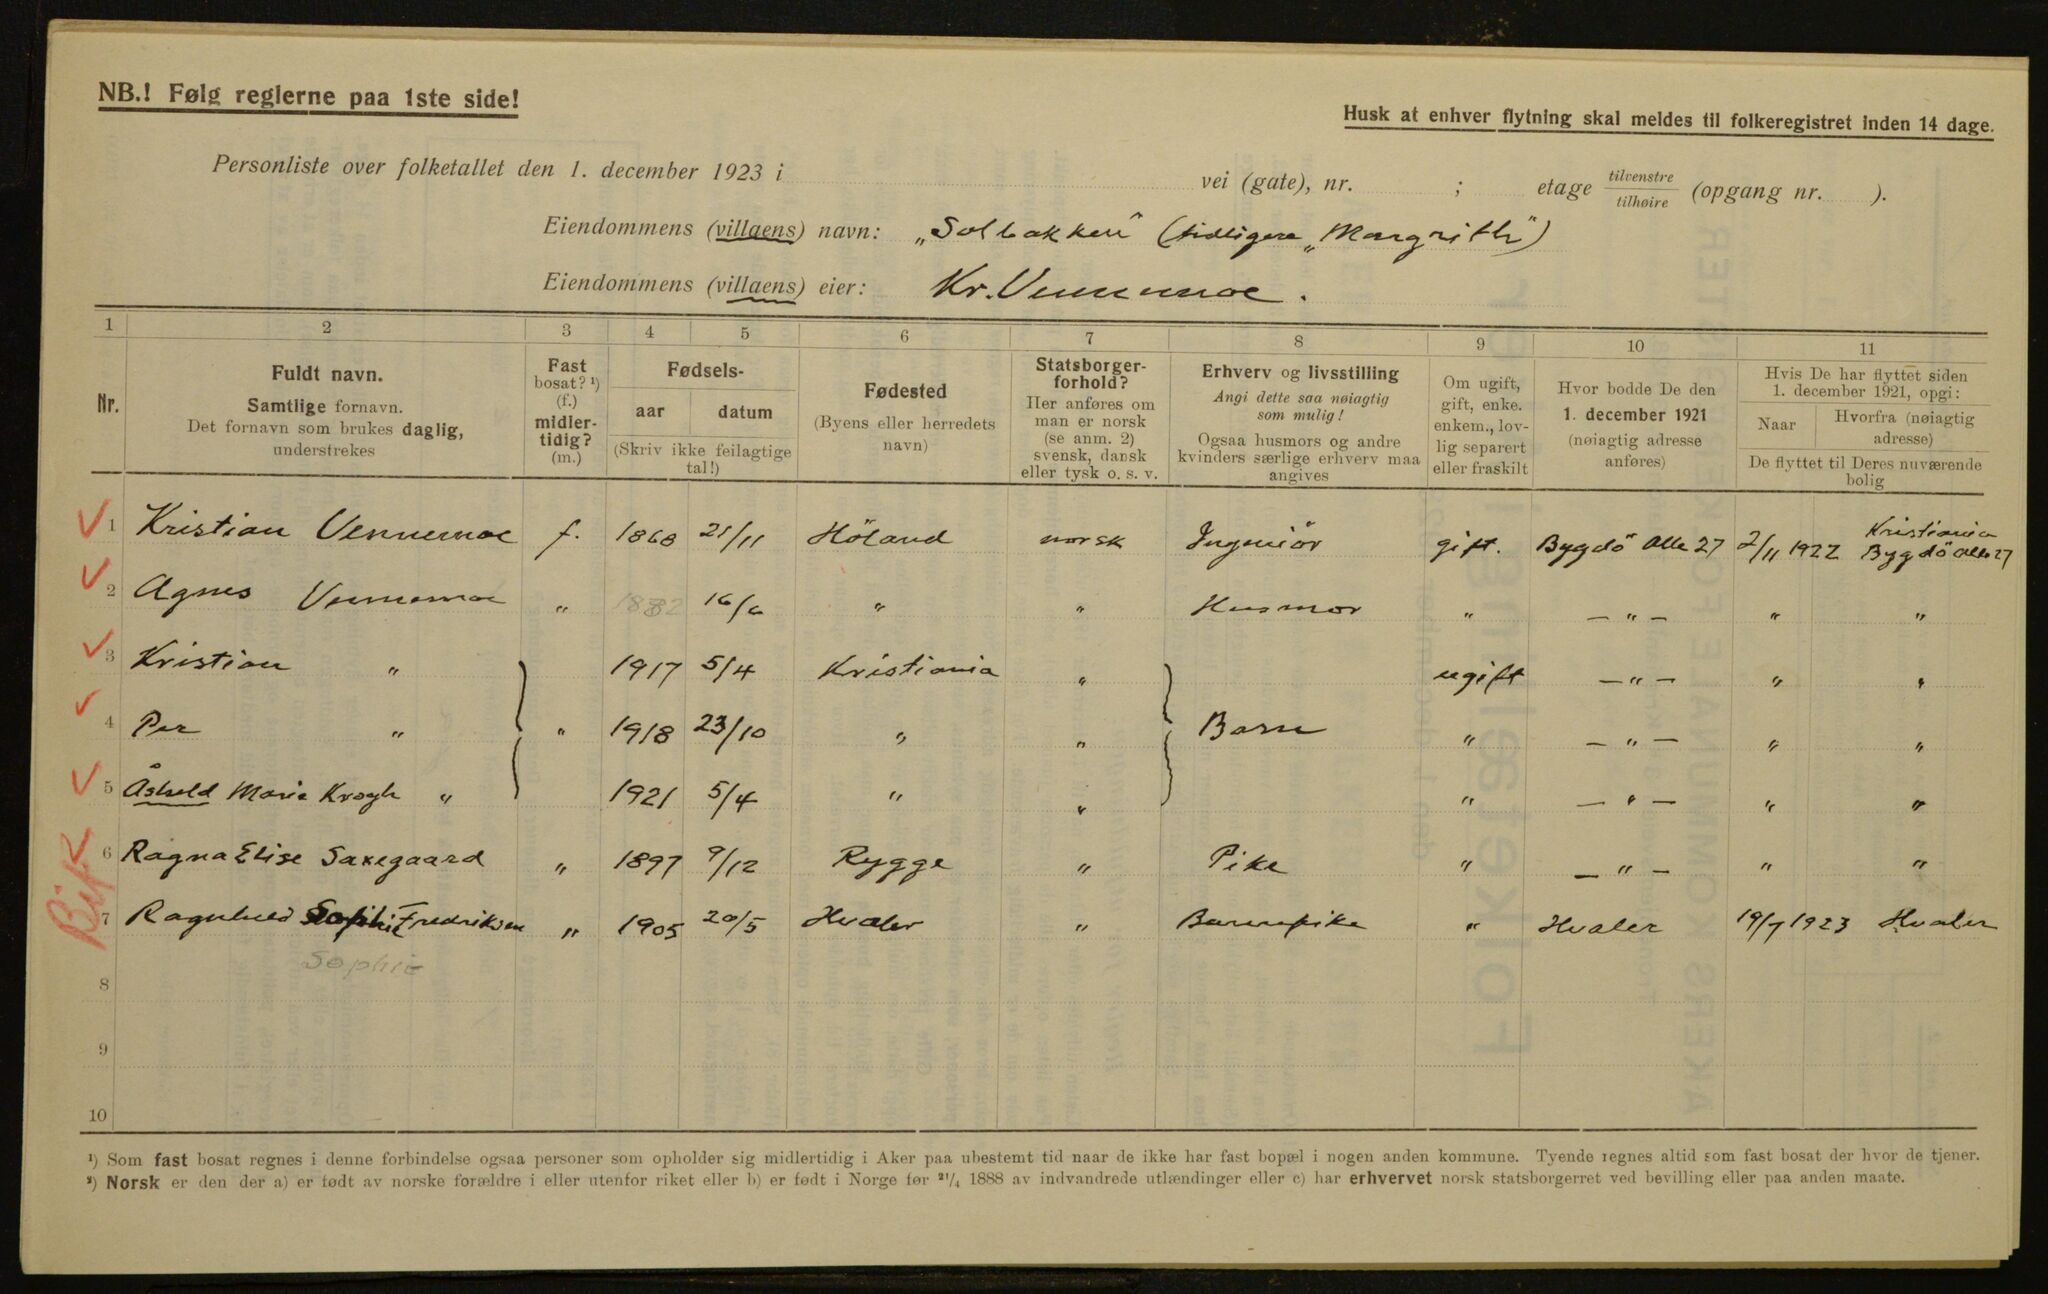 NB.! Følg reglerne paa 1ste side!
Husk at enhver flytning skal meldes til folkeregistret inden 14 dage.
Personliste over folketallet den 1. december 1923 i vei (gate), nr. ; etage tilvenstre tilhøire (opgang nr. ).
Eiendommens (villaens) navn: „Solbakken" (tidligere „Margrith")
Eiendommens (villaens) eier: Kr. Vennemoe.
1 2 3 4 5 6 7 8 9 10 11
Nr.
Fuldt navn.
Samtlige fornavn.
Det fornavn som brukes daglig,
understrekes
Fast
bosat? ¹)
(f.)
midler-
tidig?
(m.)
Fødsels-
aar datum
(Skriv ikke feilagtige
tal!)
Fødested
(Byens eller herredets
navn)
Statsborger-
forhold?
Her anføres om
man er norsk
(se anm. 2)
svensk, dansk
eller tysk o. s. v.
Erhverv og livsstilling
Angi dette saa nøiagtig
som mulig!
Ogsaa husmors og andre
kvinders særlige erhverv maa
angives
Om ugift,
gift, enke.
enkem., lov-
lig separert
eller fraskilt
Hvor bodde De den
1. december 1921
(nøiagtig adresse
anføres)
Hvis De har flyttet siden
1. december 1921, opgi:
Naar Hvorfra (nøiagtig
adresse)
De flyttet til Deres nuværende
bolig
1 Kristian Vennemoe f. 1868 21/11 Höland norsk Ingeniör gift. Bygdö Alle 27 2/11 1922 Kristiania
Bygdö Alle 27
2 Agnes Vennemoe „ 1882 16/6 „ „ Husmor „ — „ — „ „
3 Kristian „ 1917 5/4 Kristiania „ ugift — „ — „ „
4 Per „ „ 1918 23/10 „ „ Barn „ — „ — „ „
5 Åshild Marie Krogh „ 1921 5/4 „ „ „ — „ — „ „
6 Ragna Elise Saxegaard „ 1897 9/12 Rygge „ Pike „ — „ — „ „
7 Ragnhild Sophie Fredriksen „ 1905 20/5 Hvaler „ Barnepike „ Hvaler 19/9 1923 Hvaler
Sophie
8
9
10
¹) Som fast bosat regnes i denne forbindelse ogsaa personer som opholder sig midlertidig i Aker paa ubestemt tid naar de ikke har fast bopæl i nogen anden kommune. Tyende regnes altid som fast bosat der hvor de tjener.
²) Norsk er den der a) er født av norske forældre i eller utenfor riket eller b) er født i Norge før ²¹/₄ 1888 av indvandrede utlændinger eller c) har erhvervet norsk statsborgerret ved bevilling eller paa anden maate.